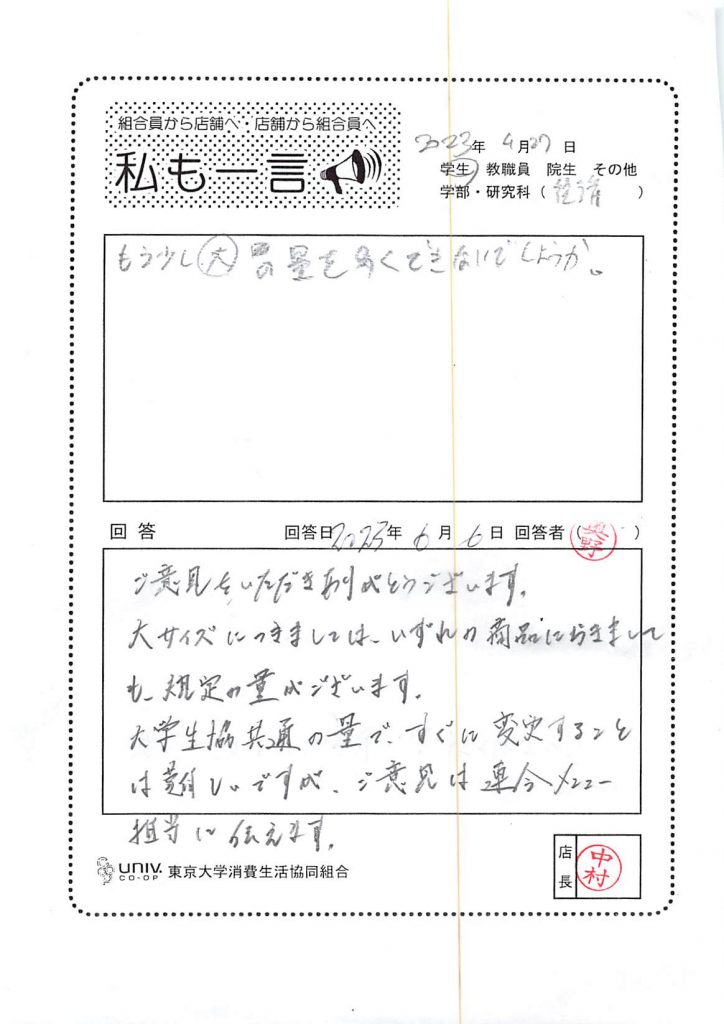 組合員から店舗へ・店舗から組合員へ
私も一言
2023年 4月27日
学生 教職員 院生 その他
学部・研究科（経済）
もう少し大の量を多くできないでしょうか。
回答 回答日2023年6月6日 回答者（奥野）
ご意見をいただきありがとうございます。
大サイズにつきましては、いずれの商品におきまして
も、規定の量がございます。
大学生協共通の量で、すぐに変更すること
は難しいですが、ご意見は連合メニュー
担当に伝えます。
UNIV. CO-OP 東京大学消費生活協同組合
店長 中村